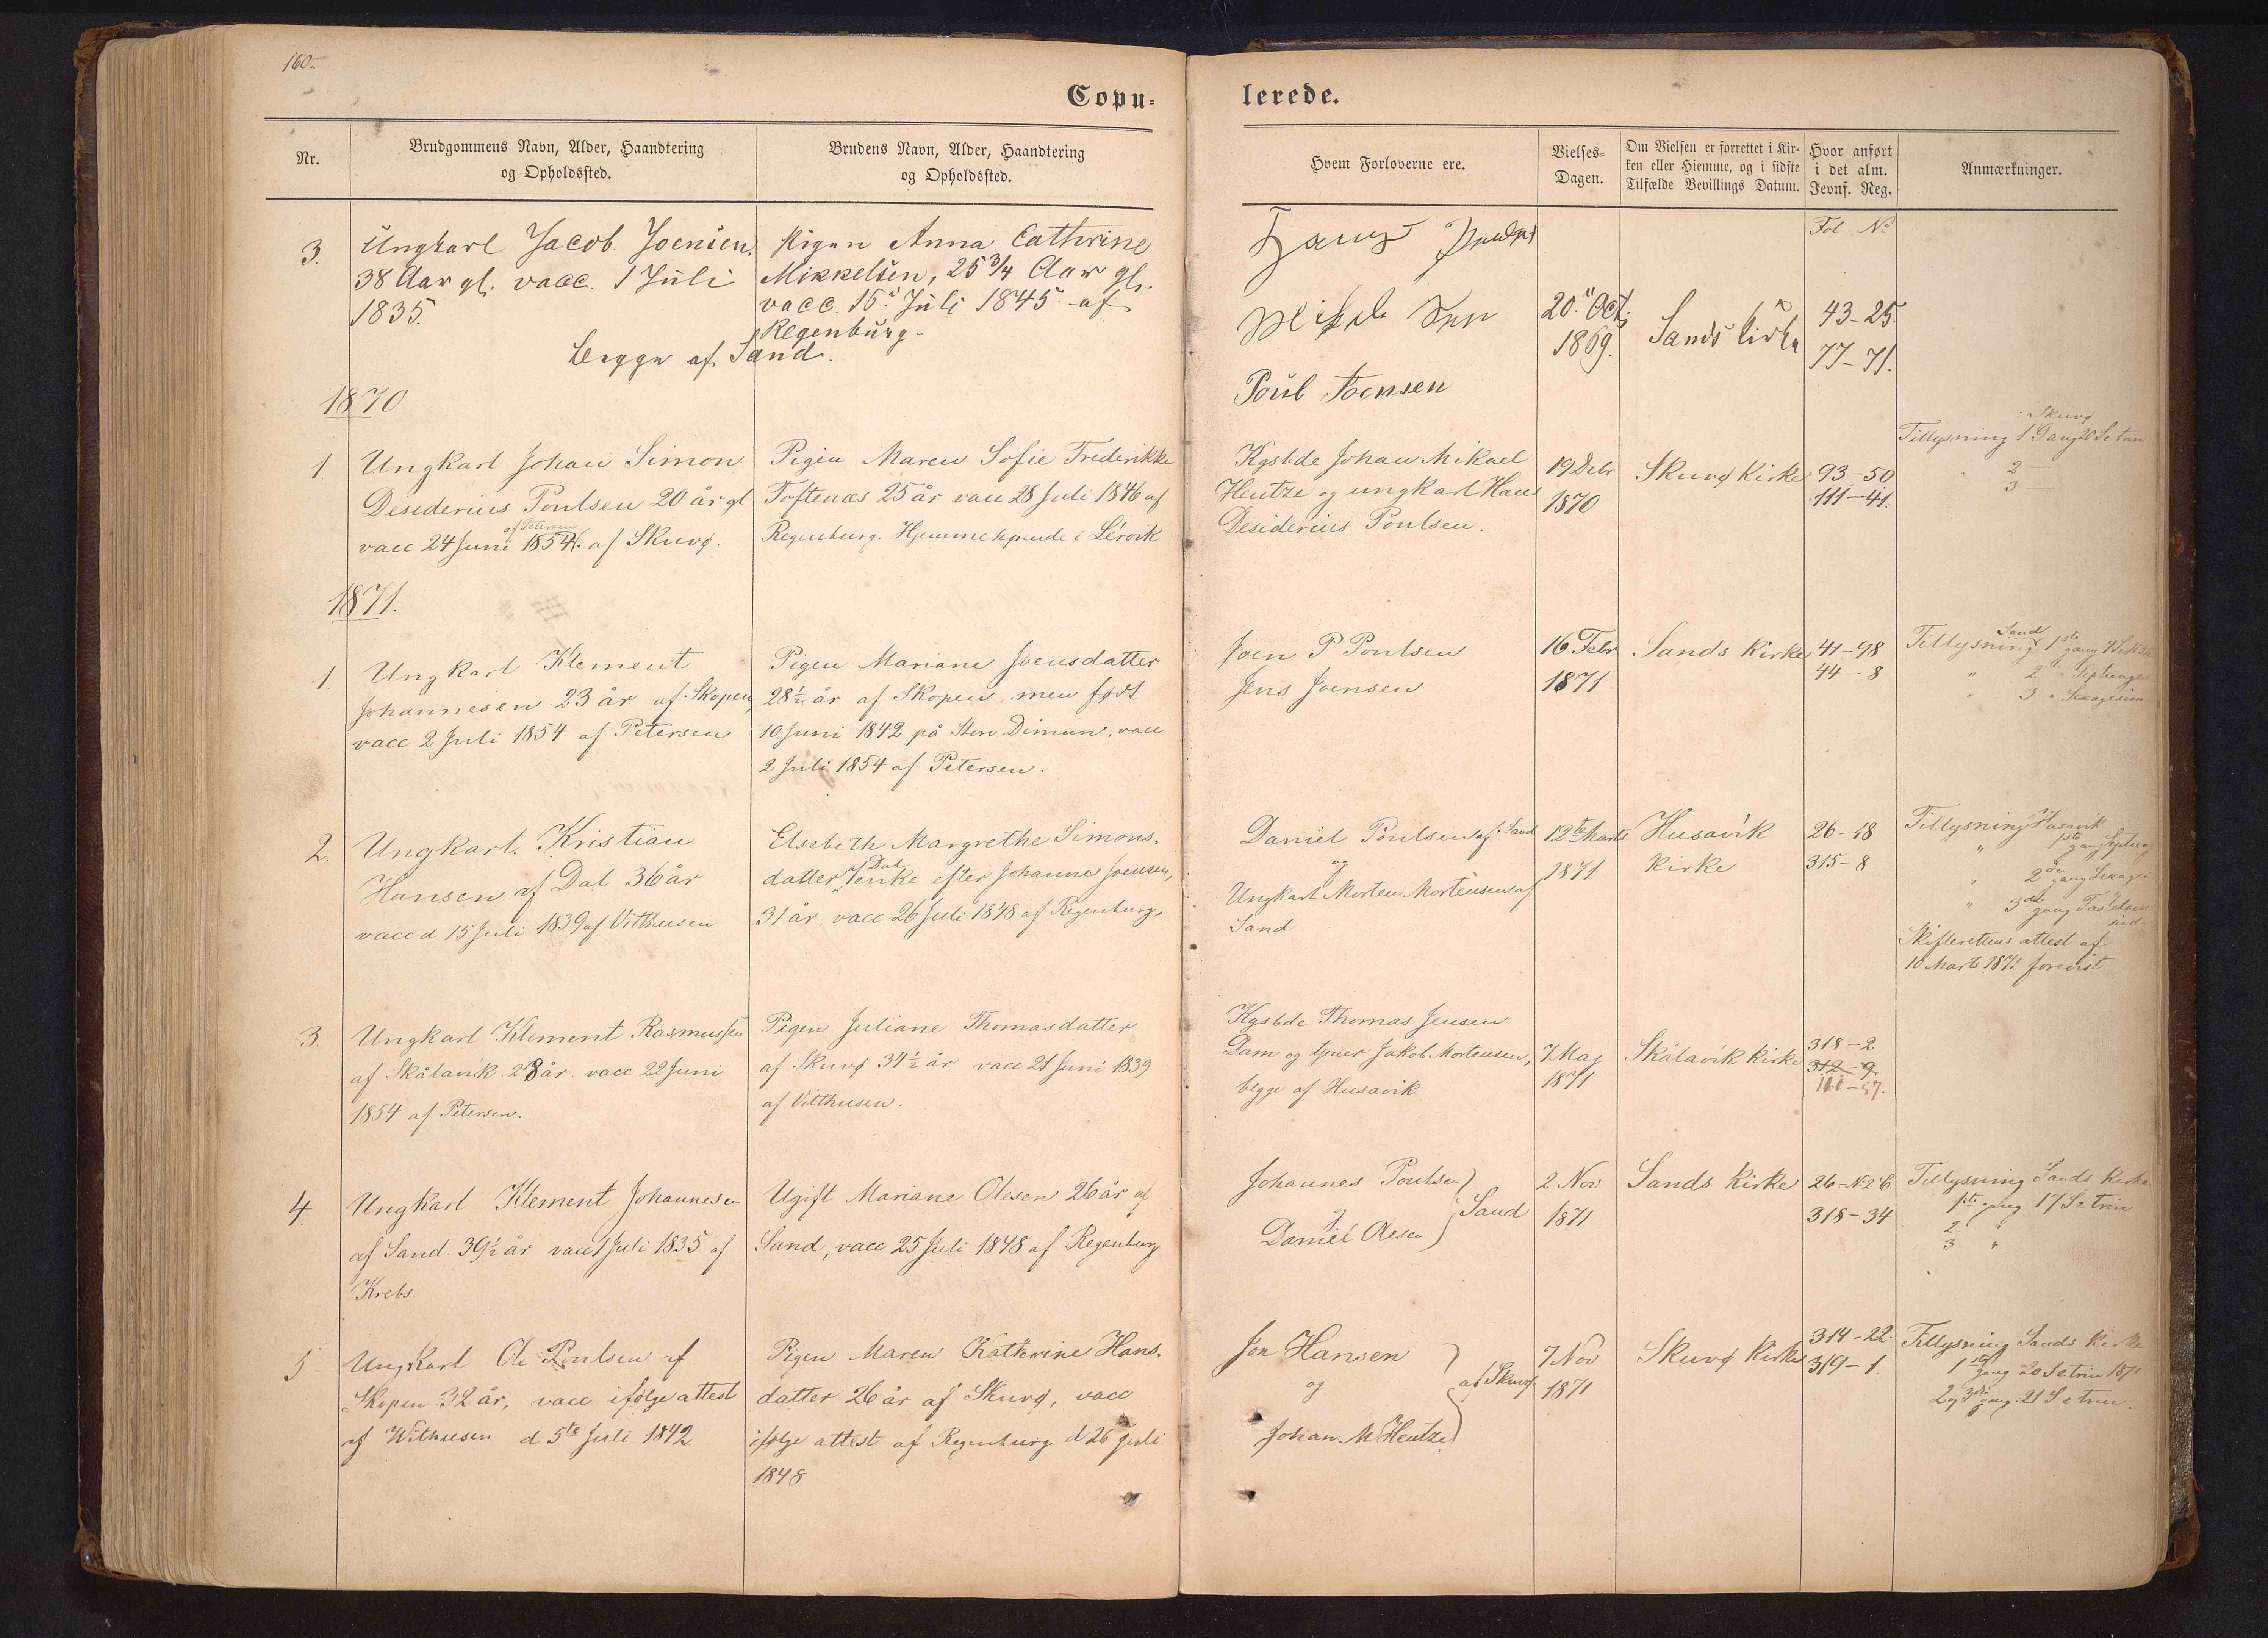 160.
Copulerede.
Nr.
Brudgommens Navn, Alder, Haandtering
og Opholdssted.
Brudens Navn, Alder, Haandtering
og Opholdssted.
Hvem Forloverne ere.
Vielses-
Dagen.
Om Vielsen er forrettet i Kir-
ken eller Hjemme, og i sidste
Tilfælde Bevillings Datum.
Hvor anført
i det alm.
Jevnf. Reg.
Anmærkninger.
3.
Ungkarl Jacob Joensen,
38 Aar gl. vacc. 1 Juli
1835.
Pigen Anna Cathrine
Mikkelsen, 25 3/4 Aar gl.
vacc. 15 Juli 1845 af
Regenburg.
begge af Sand.
Poul Joensen
20. Oct.
1869.
Sands Kirke
Fol. No
43-25.
77-71.
1870
1
Ungkarl Johan Simon
Desiderius Poulsen 20 år gl
af Petersen
vacc 24 Juni 1854. af Skuvø.
Pigen Maren Sofie Frederikke
Toftenæs 25 år vacc 28 Juli 1846 af
Regenburg. Hjemmehørende i Lérvik
Kgsbde Johan Mikael
Hentze og ungkarl Hans
Desiderius Poulsen.
19 Debr
1870
Skuvø Kirke
93-50
111-41.
Skuvø
Tillysning 1 Gang 20 S e trin
" 2 —
3 —
1871.
1.
Ungkarl Klement
Johannesen 23 år af Skopen,
vacc 2 Juli 1854 af Petersen
Pigen Mariane Joensdatter
28½ år af Skopen men født
10 Juni 1842 på Store Dimun, vacc
2 Juli 1854 af Petersen.
Joen P Poulsen
Jens Joensen
16 Febr
1871
Sands Kirke
41-98
44-8
Sand
Tillysning 1ste gang
" 2 "
" 3 "
2.
Ungkarl Kristian
Hansen af Dal 36 år
vacc d 15 Juli 1839 af Vitthusen
Elsebeth Margrethe Simons-
af Dal
datter, enke efter Johannes Joensen,
31 år, vacc 26 Juli 1848 af Regenburg,
Daniel Poulsen af Sand
og
Ungkarl Morten Mortensen af
Sand
12te Marts
1871
Husavík
Kirke
26-18
315-8
Tillysning Husavik
" 1ste gang
" 2de gang
" 3die gang Fastelavn
sønd.
Skifterettens attest af
10 Marts 1871 forevist
3.
Ungkarl Klement Rasmussen
af Skålavik 28 år vacc 22 Juni
1854 af Petersen.
Pigen Juliane Thomasdatter
af Skuvø 34½ år vacc 21 Juni 1839
af Vitthusen.
Kgsbde Thomas Jensen
Dam og tjener Jakob Mortensen,
begge af Husavik
7 Maj
1871
Skålavík Kirke
318-2
312-9.
111-57.
4.
Ungkarl Klement Johannesen
af Sand 39½ år vacc 1 Juli 1835 af
Krebs.
Ugift Mariane Olesen 26 år af
Sand, vacc 25 Juli 1848 af Regenburg
Johannes Poulsen
og
Daniel Olesen
Sand
2 Nov
1871
Sands Kirke
26-№26
318-34
Tillysning Sands kirke
1ste gang 17 S e trin
2 "
3 "
5
Ungkarl Ole Poulsen af
Skopen 32 år, vacc ifølge attest
af Withusen d 5te Juli 1842
Pigen Maren Kathrine Hans-
datter 26 år af Skuvø, vacc
ifølge attest af Regenburg d 26 Juli
1848
Jon Hansen
og
Johan M Hentze
af Skuvø
7 Nov
1871
Skuvø Kirke
314-22.
319-1.
Tillysning Sands kirke
1ste gang 20 S e trin 1871
2 og 3die gang 21 S e trin.